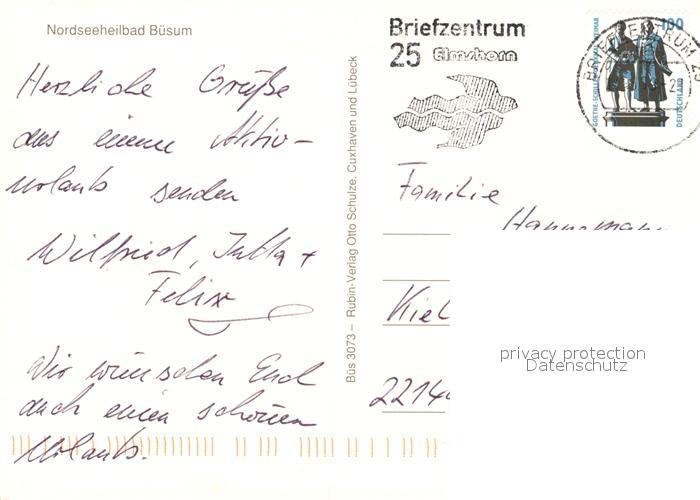 Nordseeheilbad Büsum
Herzliche Grüße
aus einem Aktiv-
urlaub senden
Wilfried, Jutta +
Felix
Wir wünschen Euch
auch einen schönen
Urlaub.
Büs 3073 – Rubin-Verlag Otto Schulze, Cuxhaven und Lübeck
Briefzentrum
25 Elmshorn
100
DEUTSCHLAND
BRIEFZENTRUM 25
Familie
Kiel
2214
privacy protection
Datenschutz